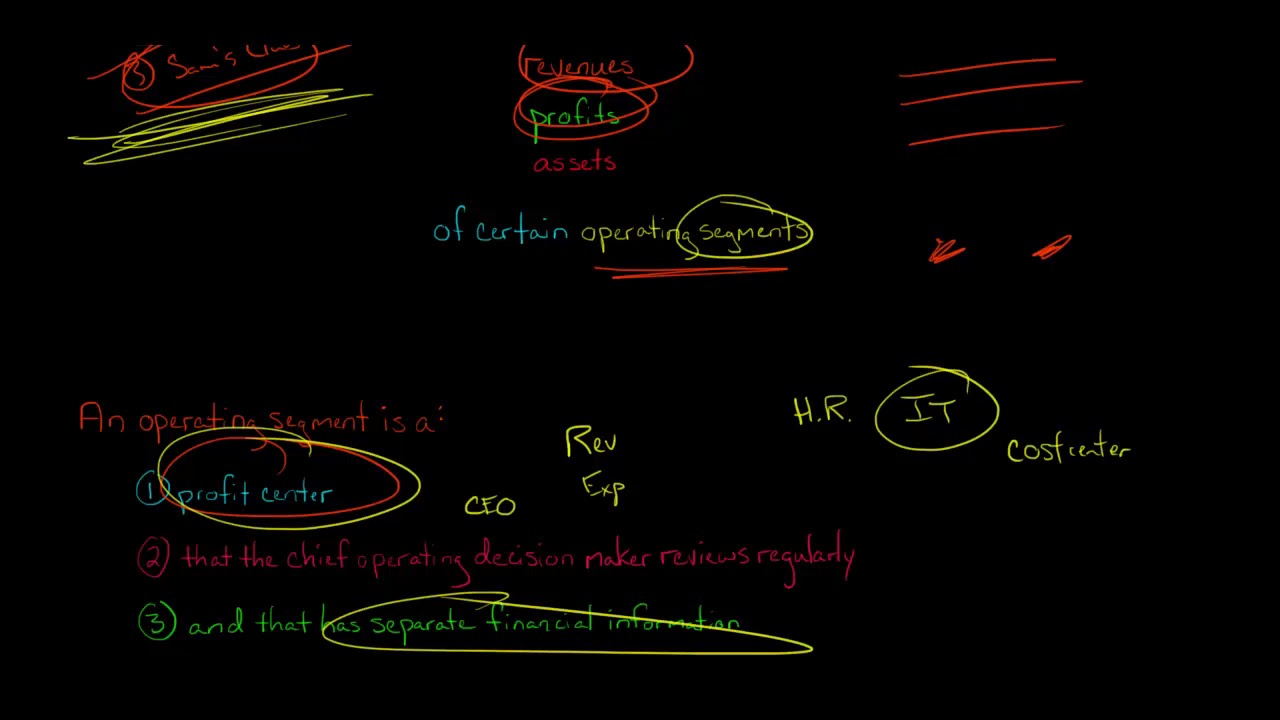 ③ Sam's Club
revenues
profits
assets
of certain operating segments
H.R. IT
cost center
An operating segment is a:
Rev
Exp
① profit center
CEO
② that the chief operating decision maker reviews regularly
③ and that has separate financial information